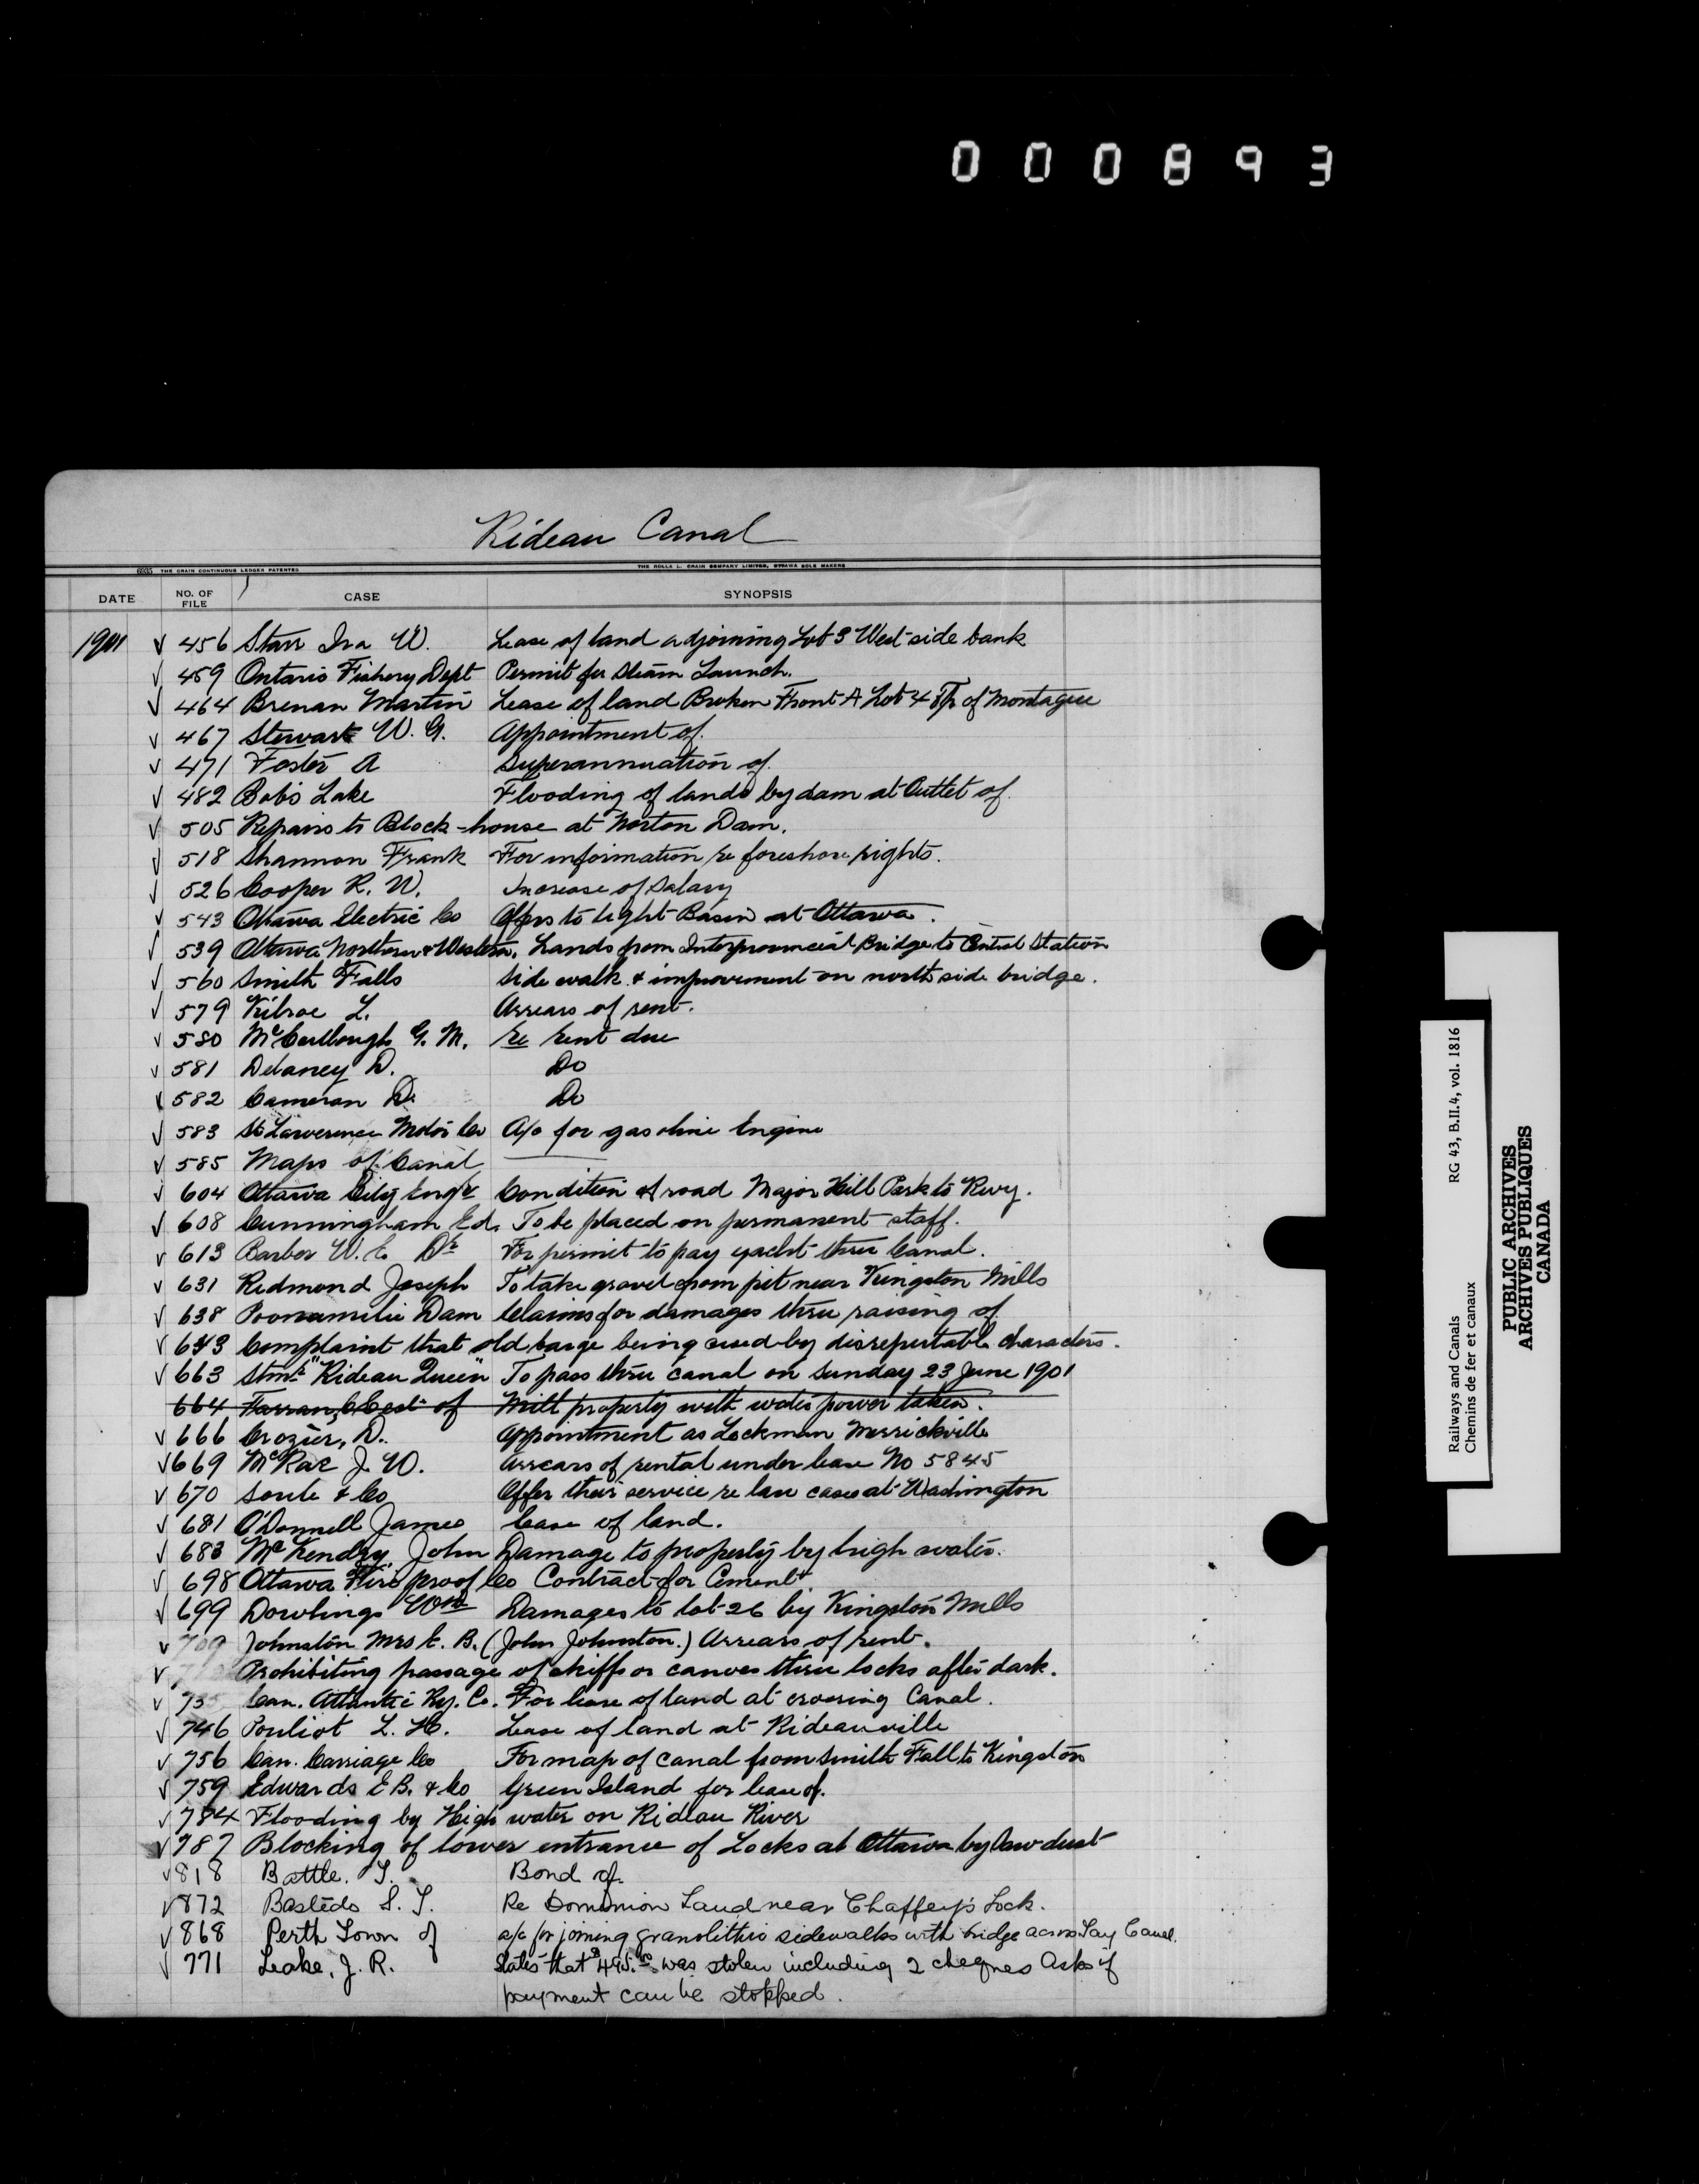 000893
Rideau Canal
6035 THE CRAIN CONTINUOUS LEDGER PATENTED THE ROLLA L. CRAIN COMPANY LIMITED, OTTAWA SOLE MAKERS
DATE NO. OF FILE CASE SYNOPSIS
1901 √ 456 Starr Ira W. Lease of land adjoining Lot 3 West side bank
√ 459 Ontario Fishery Dept Permit for Steam Launch.
√ 464 Brenan Martin Lease of land Broken Front A Lot 4 Tp of Montague
√ 467 Stewart W. G. Appointment of.
√ 471 Foster A Superannuation of.
√ 482 Bobs Lake Flooding of lands by dam at Outlet of.
√ 505 Repairs to Block-house at Morton Dam.
√ 518 Shannon Frank For information re foreshore rights.
√ 526 Cooper R. W. Increase of Salary
√ 543 Ottawa Electric Co Offers to light Basin at Ottawa.
√ 539 Ottawa Northern & Western. Lands from Interprovincial Bridge to Central Station
√ 560 Smith Falls Side walk & improvement on north side bridge.
√ 579 Kilroe L. Arrears of rent.
√ 580 McCullough G. M. re rent due
√ 581 Delaney D. Do
√ 582 Cameran D. Do
√ 583 St Lawerence Motor Co A/c for gasoline Engine
√ 585 Maps of Canal
√ 604 Ottawa City Engr Condition of road Major Hill Park to Rwy.
√ 608 Cunningham Ed. To be placed on permanent staff.
√ 613 Barber W. C. Dr For permit to pay yacht thru Canal.
√ 631 Redmond Joseph To take gravel from pit near Kingston Mills
√ 638 Poonamilie Dam Claims for damages thru raising of
√ 643 Complaint that old barge being used by disreputable characters.
√ 663 Stmr "Rideau Queen" To pass thru canal on Sunday 23 June 1901
664 Farran, C. C. est of Mill property with water power taken.
√ 666 Crozier, D. Appointment as Lockman Merrickville
√ 669 McRae J. W. Arrears of rental under lease No 5845
√ 670 Soule & Co Offer their service re law cases at Washington
√ 681 O'Donnell James Lease of land.
√ 683 McKendry, John Damage to property by high water.
√ 698 Ottawa Fire proof Co Contract for Cement.
√ 699 Dowlings Wm Damages to lot 26 by Kingston Mills
√ 709 Johnston Mrs C. B. (John Johnston.) Arrears of rent.
√ Prohibiting passage of skiffs or canoes thru locks after dark.
√ 735 Can. Atlantic Ry. Co. For lease of land at crossing Canal.
√ 746 Pouliot L. H. Lease of land at Rideauville
√ 756 Can. Carriage Co For map of canal from Smith Fall to Kingston
√ 759 Edwards E B. & Co Green Island for lease of.
√ 784 Flooding by High water on Rideau River
√ 787 Blocking of lower entrance of Locks at Ottawa by Saw dust
√ 818 Battle. T. Bond of.
√ 872 Bastedo S. T. Re Dominion Land near Chaffey's Lock.
√ 868 Perth Town of a/c for joining granolithic sidewalks with bridge across Tay Canal.
√ 771 Leake, J. R. States that $495.00 was stolen including 2 cheques Asks if
payment can be stopped.
Railways and Canals RG 43, B.II.4, vol. 1816
Chemins de fer et canaux
PUBLIC ARCHIVES
ARCHIVES PUBLIQUES
CANADA